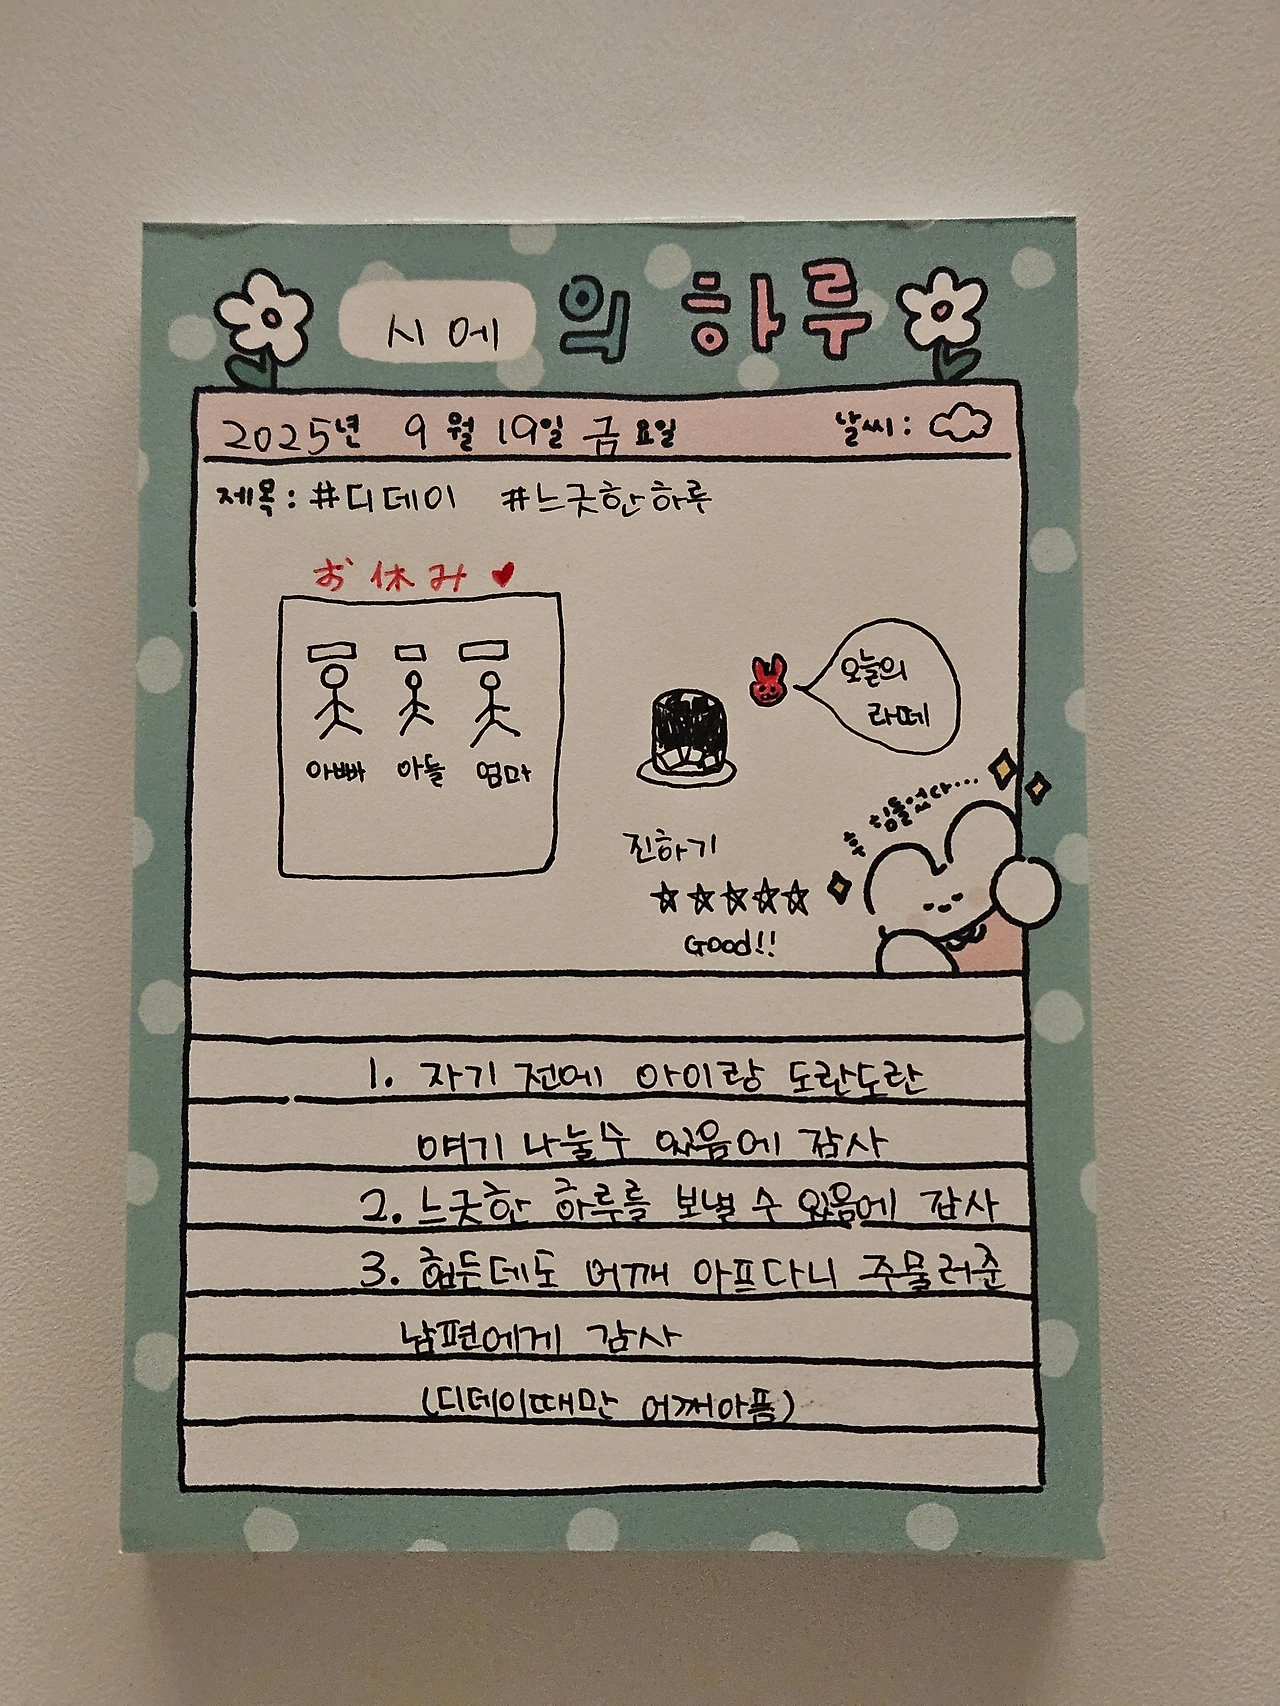 시에의 하루
2025년 9월 19일 금요일 날씨:
제목: #디데이 #느긋한하루
お休み♥
아빠 아들 엄마
오늘의
라떼
후 힘들었다...
진하기
☆☆☆☆☆
Good!!
1. 자기 전에 아이랑 도란도란
얘기 나눌수 있음에 감사
2. 느긋한 하루를 보낼 수 있음에 감사
3. 힘든데도 어깨 아프다니 주물러준
남편에게 감사
(디데이때만 어깨아픔)